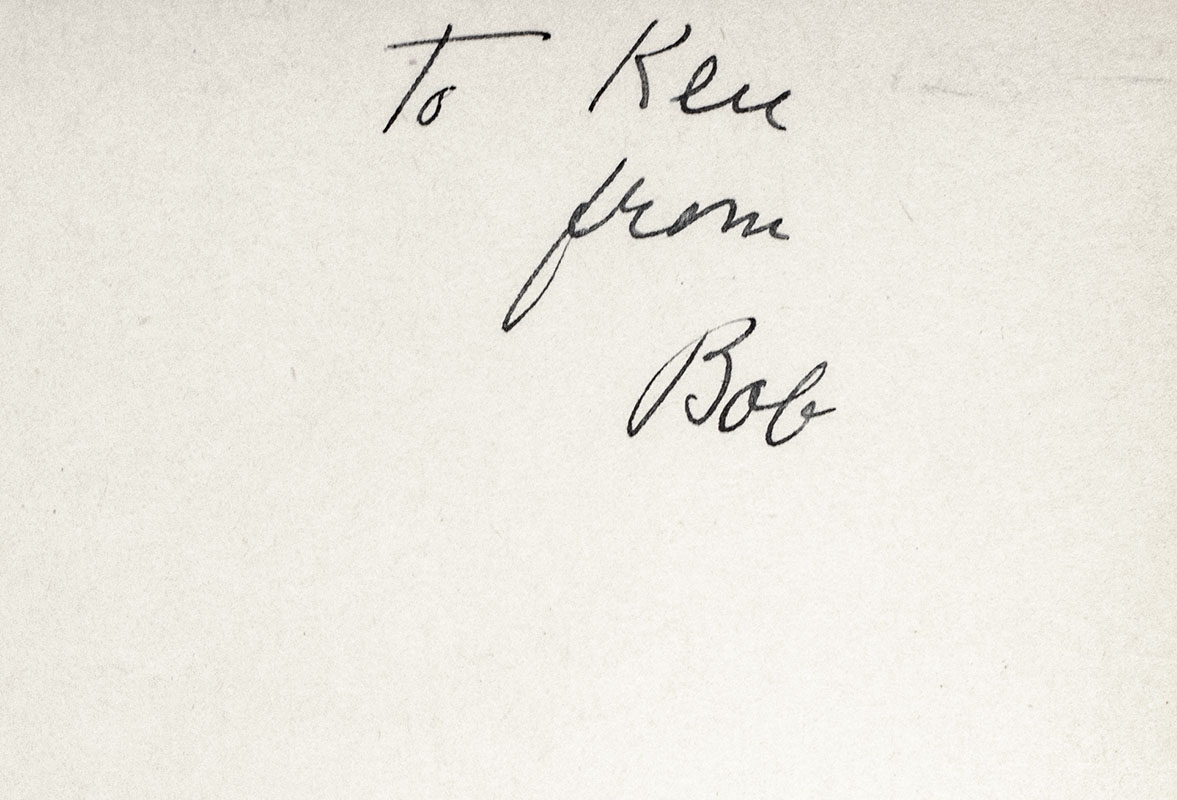 To Ken
from
Bob